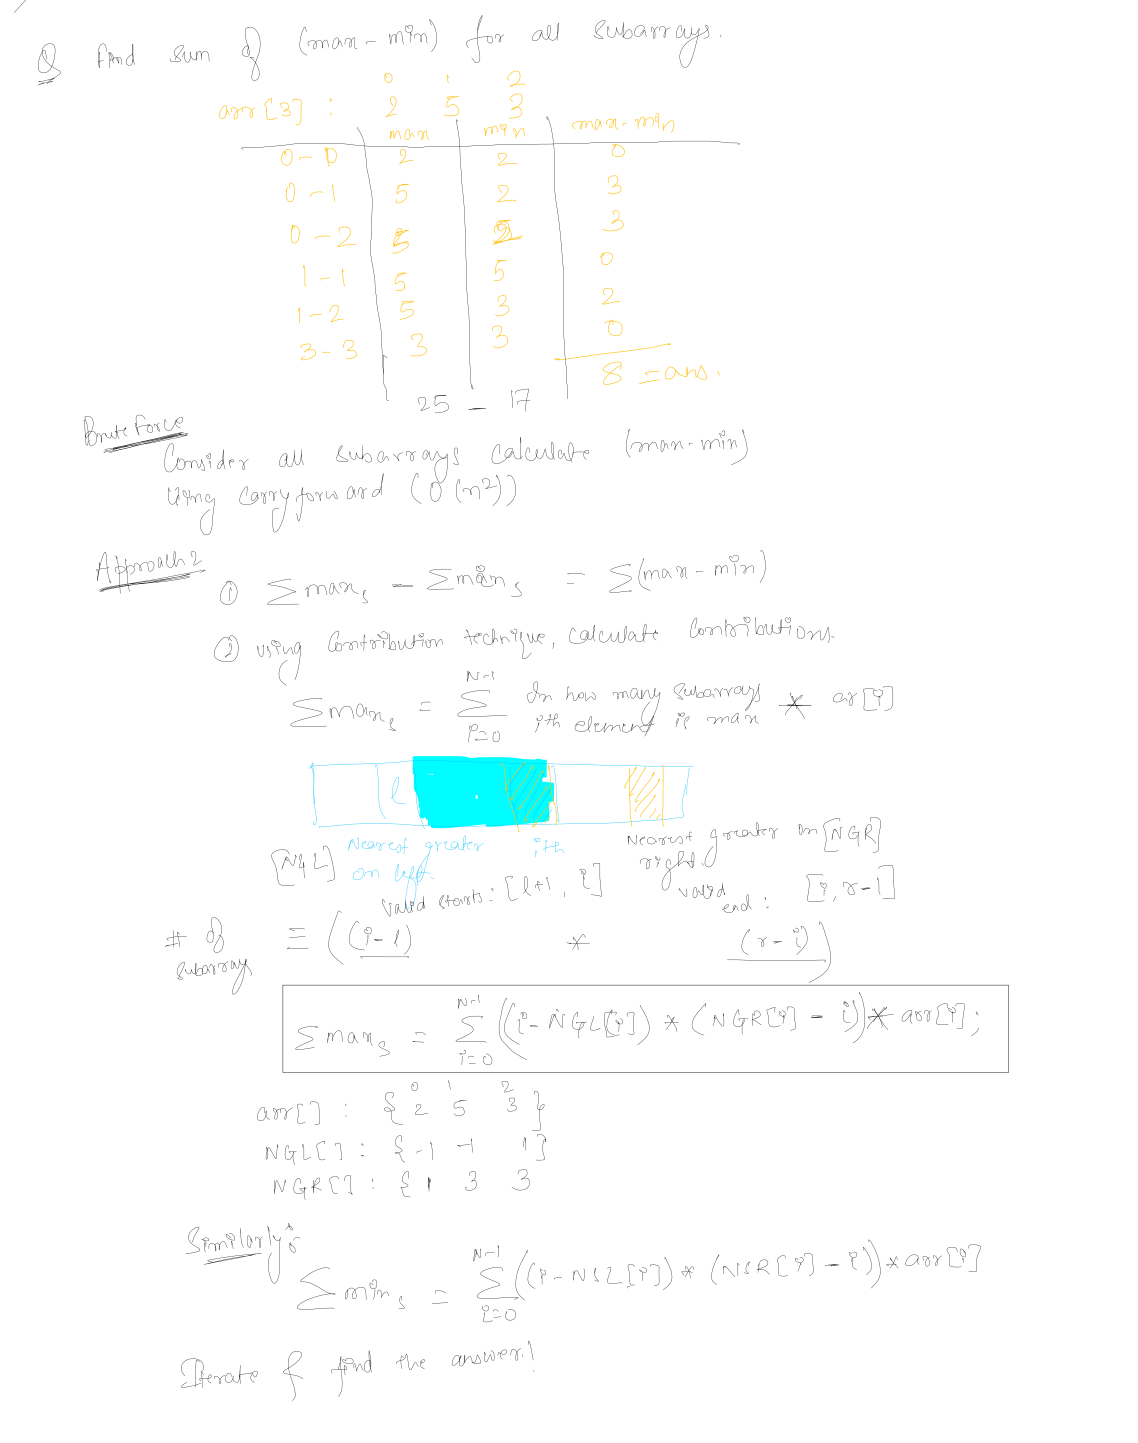 Q Find sum of (max-min) for all subarrays.
0 1 2
arr[3] : 2 5 3
max min max-min
0-0 2 2 0
0-1 5 2 3
0-2 5 2 3
1-1 5 5 0
1-2 5 3 2
3-3 3 3 0
8 = ans.
25 - 17
Brute Force
Consider all subarrays calculate (max-min)
Using carry forward (O(n²))
Approach 2
① ∑max_s - ∑min_s = ∑(max-min)
② using Contribution technique, calculate Contributions.
∑max_s = ∑_{i=0}^{N-1} In how many subarrays ith element is max * ar[i]
l
Nearest greater on left. [NGL]
ith
Nearest greater on right. [NGR]
Valid starts: [l+1, i]
valid end: [i, r-1]
# of subarrays = ((i-l) * (r-i))
∑max_s = ∑_{i=0}^{N-1} ((i-NGL[i]) * (NGR[i] - i)) * arr[i];
0 1 2
arr[] : { 2 5 3 }
NGL[] : { -1 -1 1 }
NGR[] : { 1 3 3
Similarly:
∑min_s = ∑_{i=0}^{N-1} ((i-NSL[i]) * (NSR[i] - i)) * arr[i]
Iterate & find the answer!